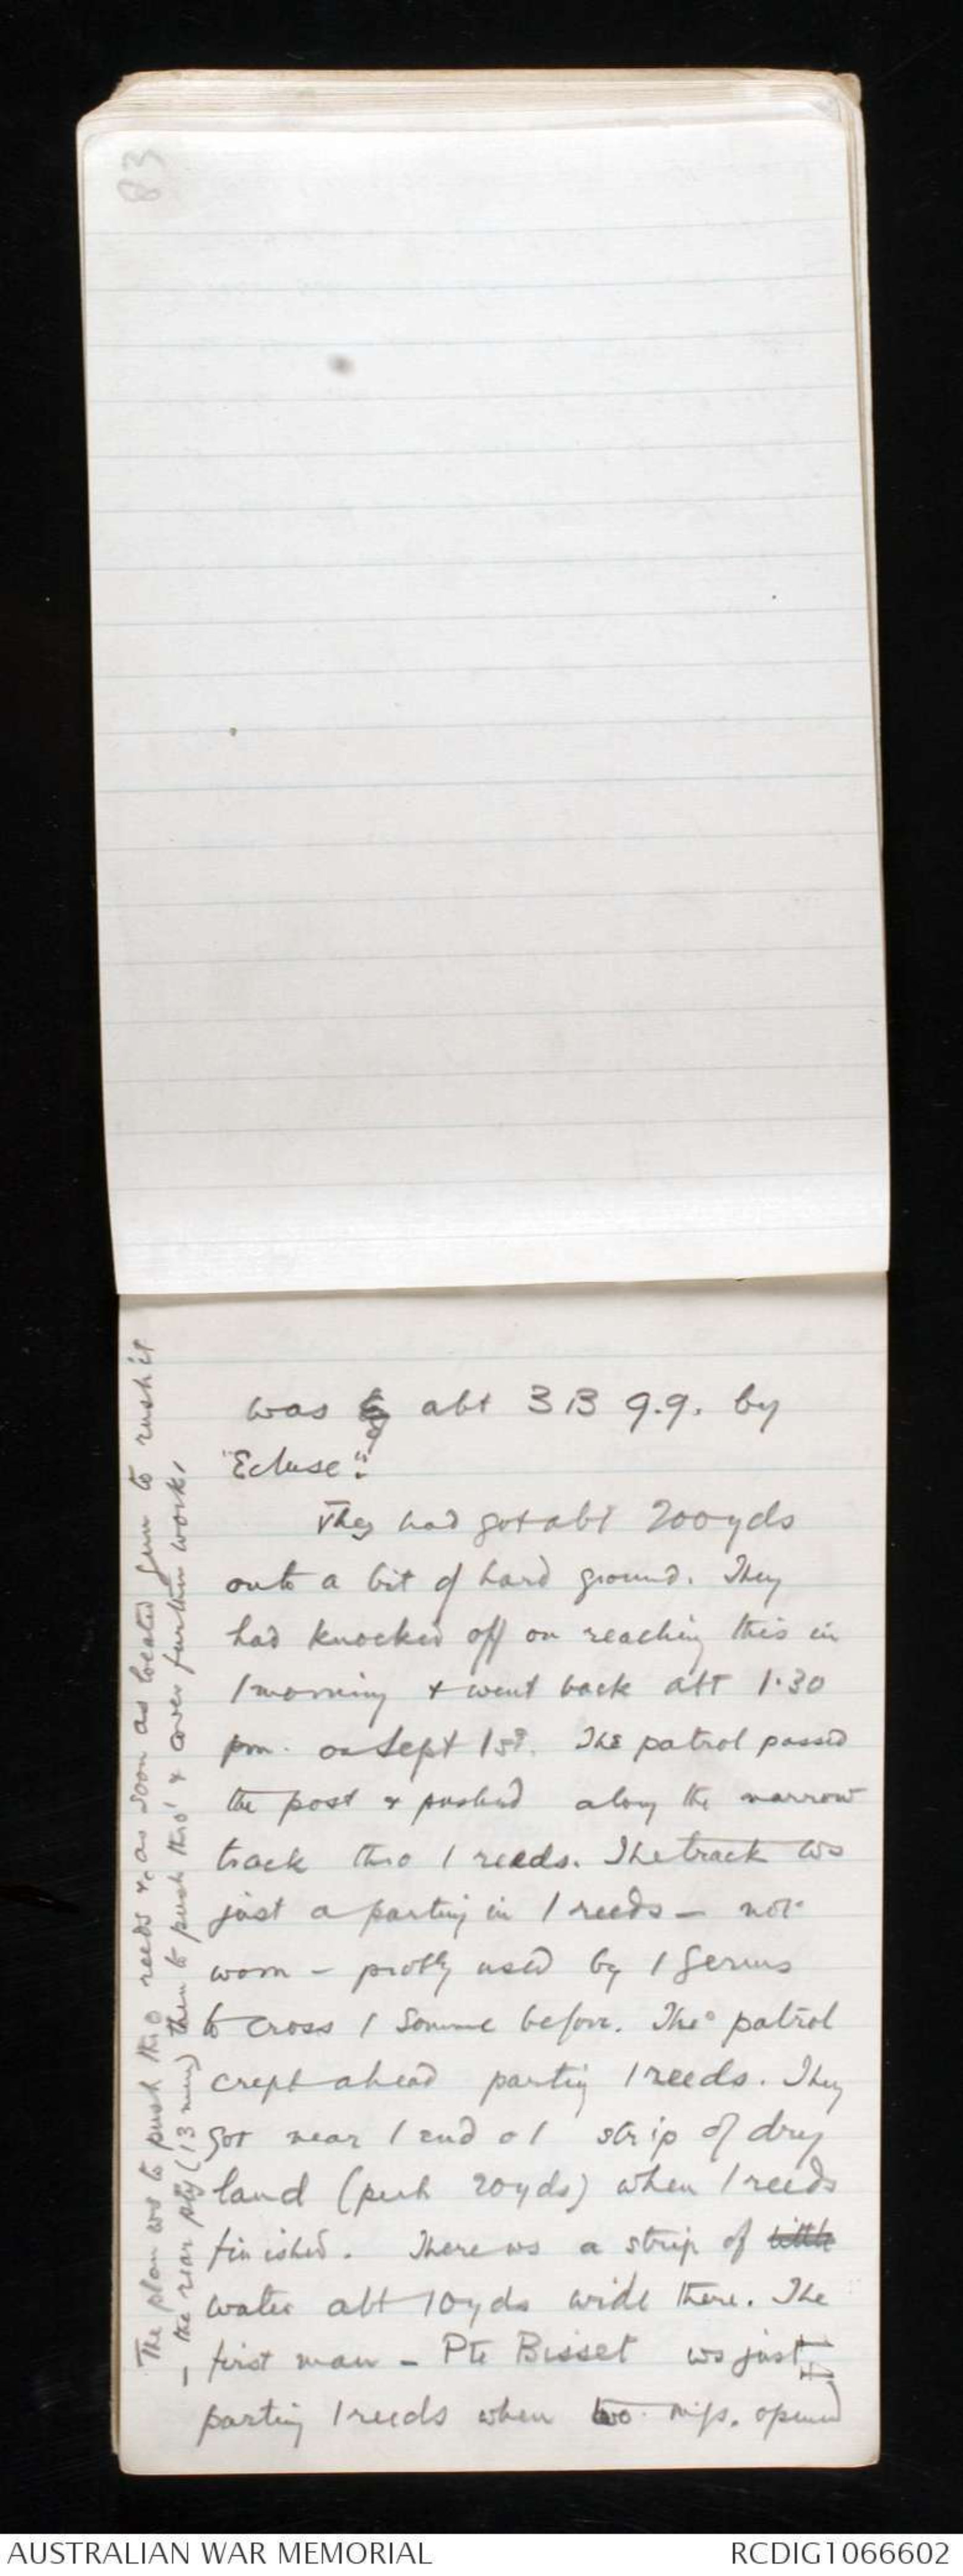 83
was abt 3 B 9.9. by
"Ecluse".
They had got abt 200 yds
onto a bit of hard ground. They
had knocked off on reaching this in
/ morning & went back abt 1.30
pm. on Sept 1st. The patrol passed
the post & pushed along the narrow
track thro / reeds. The track ws
just a parting in / reeds - not
worn - probly used by / Germs
to cross / Somme before. The patrol
crept ahead parting / reeds. They
got near / end o / strip of dry
land (perh 20 yds) when / reeds
finished. There ws a strip of little
water abt 10 yds wide there. The
first man - Pte Bisset ws just
parting / reeds when two m.gs. opened
The plan ws to push thro reeds &, as soon as located gun to rush it
- the rear pty (13 men) then to push thro' & cover further work,
AUSTRALIAN WAR MEMORIAL
RCDIG1066602